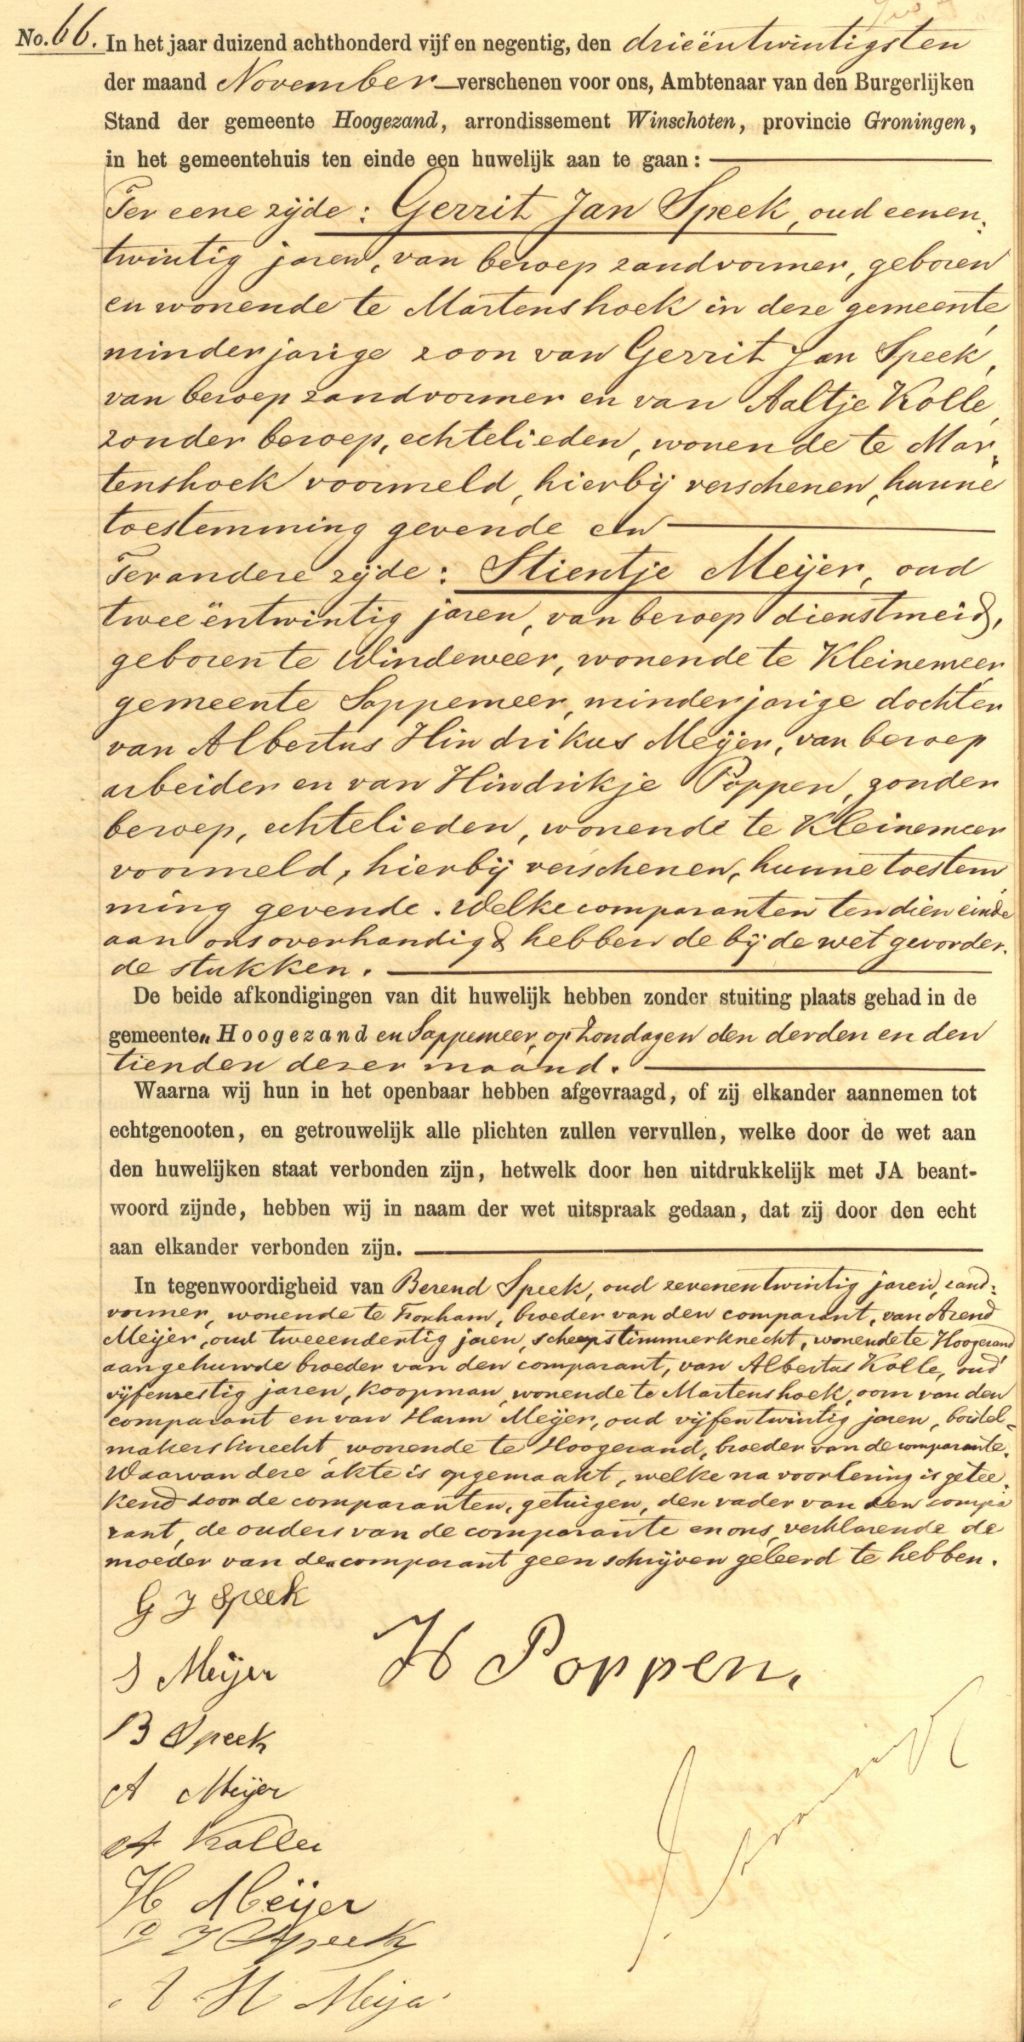 No. 66. In het jaar duizend achthonderd vijf en negentig, den drieëntwintigsten
der maand November verschenen voor ons, Ambtenaar van den Burgerlijken
Stand der gemeente Hoogezand, arrondissement Winschoten, provincie Groningen,
in het gemeentehuis ten einde een huwelijk aan te gaan:
Ter eene zijde: Gerrit Jan Speek, oud eenen-
twintig jaren, van beroep zandvormer, geboren
en wonende te Martenshoek in deze gemeente,
minderjarige zoon van Gerrit Jan Speek,
van beroep zandvormer en van Aaltje Kolle,
zonder beroep, echtelieden, wonende te Mar-
tenshoek voormeld, hierbij verschenen, hunne
toestemming gevende en
Ter andere zijde: Stientje Meijer, oud
tweeëntwintig jaren, van beroep dienstmeid,
geboren te Windeweer, wonende te Kleinemeer
gemeente Sappemeer, minderjarige dochter
van Albertus Hindrikus Meijer, van beroep
arbeider en van Hindrikje Poppen, zonder
beroep, echtelieden, wonende te Kleinemeer
voormeld, hierbij verschenen, hunne toestem
ming gevende. Welke comparanten ten dien einde
aan ons overhandigd hebben de bij de wet gevorder-
de stukken.
De beide afkondigingen van dit huwelijk hebben zonder stuiting plaats gehad in de
gemeenten Hoogezand en Sappemeer, op Zondagen den derden en den
tienden dezer maand.
Waarna wij hun in het openbaar hebben afgevraagd, of zij elkander aannemen tot
echtgenooten, en getrouwelijk alle plichten zullen vervullen, welke door de wet aan
den huwelijken staat verbonden zijn, hetwelk door hen uitdrukkelijk met JA beant-
woord zijnde, hebben wij in naam der wet uitspraak gedaan, dat zij door den echt
aan elkander verbonden zijn.
In tegenwoordigheid van Berend Speek, oud zevenentwintig jaren, zand-
vormer, wonende te Foxham, broeder van den comparant, van Arend
Meijer, oud tweeendertig jaren, scheepstimmerknecht, wonende te Hoogezand
aangehuwde broeder van den comparant, van Albertus Kolle, oud
vijfenzestig jaren, koopman, wonende te Martenshoek, oom van den
comparant en van Harm Meijer, oud vijfentwintig jaren, borstel-
makersknecht, wonende te Hoogezand, broeder van de comparante.
Waarvan deze akte is opgemaakt, welke na voorlezing is getee-
kend door de comparanten, getuigen, den vader van den compa
rant, de ouders van de comparante en ons, verklarende de
moeder van den comparant geen schrijven geleerd te hebben.
G J Speek
S Meijer
H Poppen.
B Speek
A Meijer
A Kolle
H Meijer
G J Speek
A H Meijer